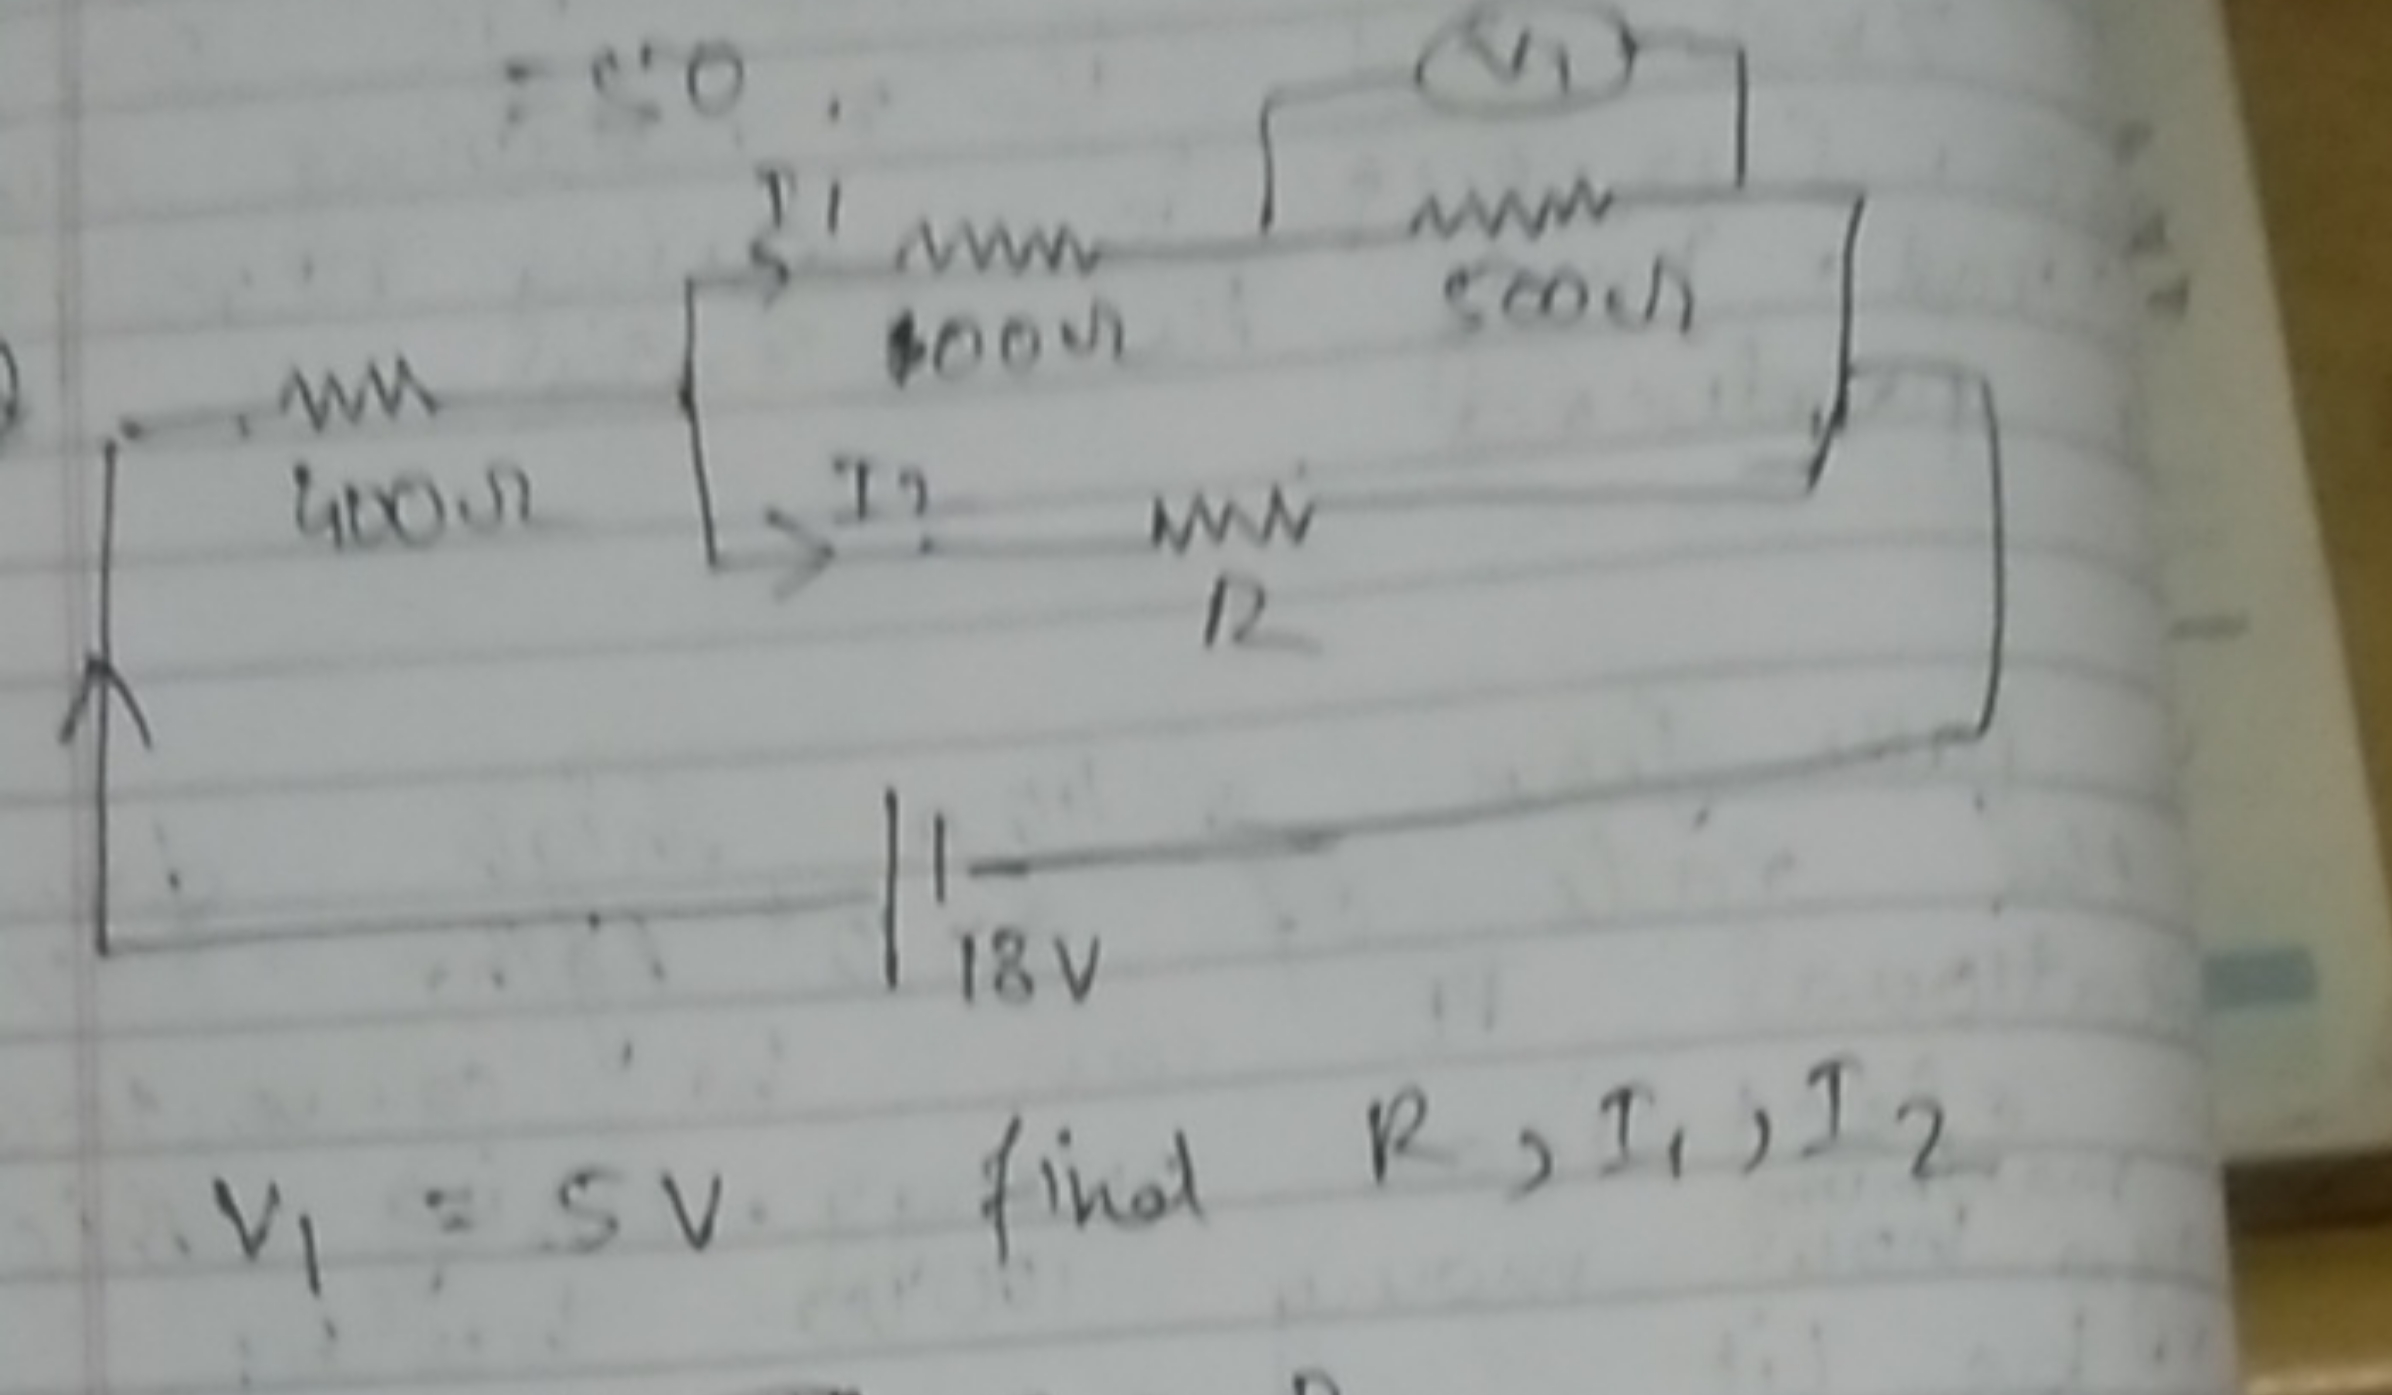 = 50
V1
I1
100Ω
500Ω
400Ω
I2
R
18V
V1 = 5V find R, I1, I2